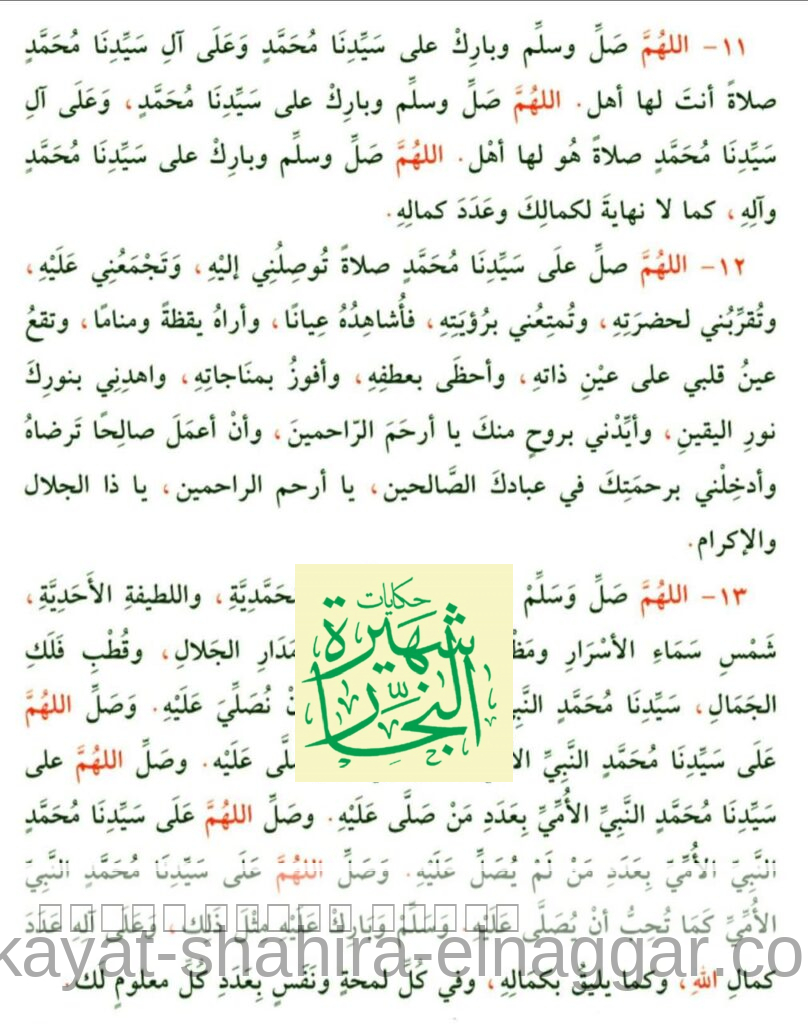 ١١- اللهُمَّ صَلِّ وسلِّم وبارِكْ على سَيِّدِنَا مُحَمَّدٍ وَعَلَى آلِ سَيِّدِنَا مُحَمَّدٍ
صلاةً أنتَ لها أهل. اللهُمَّ صَلِّ وسلِّم وبارِكْ على سَيِّدِنَا مُحَمَّدٍ، وَعَلَى آلِ
سَيِّدِنَا مُحَمَّدٍ صلاةً هُو لها أهْل. اللهُمَّ صَلِّ وسلِّم وبارِكْ على سَيِّدِنَا مُحَمَّدٍ
وآلِهِ، كما لا نهايةَ لكمالِكَ وعَدَدَ كمالِهِ.
١٢- اللهُمَّ صلِّ علَى سَيِّدِنَا مُحَمَّدٍ صلاةً تُوصِلُنِي إليْهِ، وَتَجْمَعُنِي عَلَيْهِ،
وتُقرِّبُني لحضرَتِهِ، وتُمتِعُني برُؤيَتِهِ، فأُشاهِدُهُ عِيانًا، وأراهُ يقظةً ومنامًا، وتقعُ
عينُ قلبي على عيْنِ ذاتهِ، وأحظَى بعطفِهِ، وأفوزُ بمنَاجاتِهِ، واهدِنِي بنورِكَ
نورِ اليقينِ، وأيِّدْني بروحٍ منكَ يا أرحَمَ الرّاحمينَ، وأنْ أعمَلَ صالِحًا تَرضاهُ
وأدخِلْني برحمَتِكَ في عبادكَ الصَّالحين، يا أرحم الراحمين، يا ذا الجلال
والإكرام.
١٣- اللهُمَّ صَلِّ وَسَلِّمْ واللطيفةِ الأَحَدِيَّةِ،
شَمْسِ سَمَاءِ الأسْرَارِ الجَلالِ، وقُطْبِ فَلَكِ
الجَمَالِ، سَيِّدِنَا مُحَمَّدٍ نُصَلِّيَ عَلَيْهِ. وَصَلِّ اللهُمَّ
عَلَى سَيِّدِنَا مُحَمَّدٍ النَّبِيِّ عَلَيْه. وصَلِّ اللهُمَّ على
سَيِّدِنَا مُحَمَّدٍ النَّبِيِّ الأُمِّيِّ بِعَدَدِ مَنْ صَلَّى عَلَيْهِ. وصَلِّ اللهُمَّ عَلَى سَيِّدِنَا مُحَمَّدٍ
النَّبِيِّ الأُمِّيِّ بِعَدَدِ مَنْ لَمْ يُصَلِّ عَلَيْهِ. وَصَلِّ اللهُمَّ عَلَى سَيِّدِنَا مُحَمَّدٍ النَّبِيِّ
الأُمِّيِّ كَمَا تُحِبُّ أنْ يُصَلَّى عَلَيْهِ وَسَلِّمْ وَبَارِكْ عَلَيْهِ مثْلَ ذَلِك، وَعَلَى آلهِ عَدَدَ
كمالِ اللهِ، وكما يليقُ بكمالِهِ، وفي كُلِّ لمحةٍ ونَفَسٍ بِعَدَدِ كُلِّ معلومٍ لَك.
حكايات
شهيرة
النجار
kayat-shahira-elnaggar.co